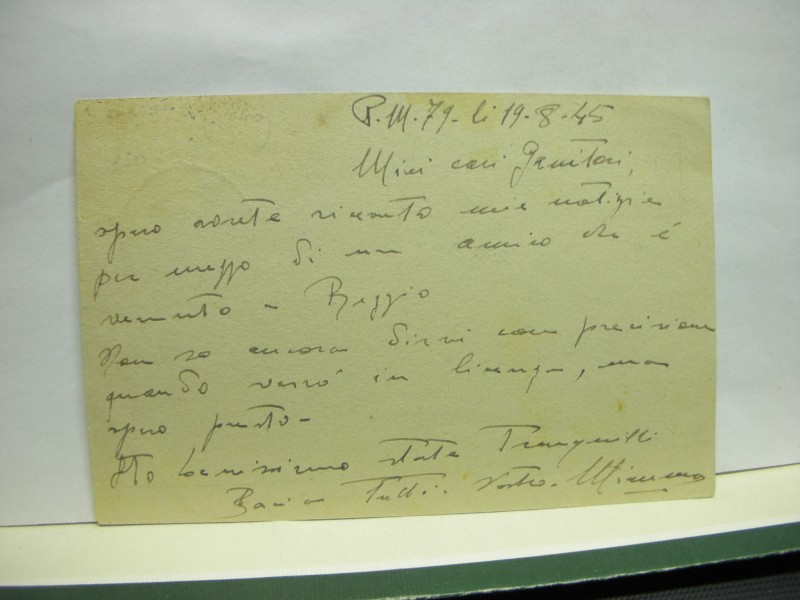 P.M. 79 - li 19-8-45
Miei cari Genitori,
spero avrete ricevuto mie notizie
per mezzo di un amico che è
venuto a Reggio
Non so ancora dirvi con precisione
quando verrò in licenza, ma
spero presto -
Sto benissimo state tranquilli
Baci a tutti. Vostro - Mimmo